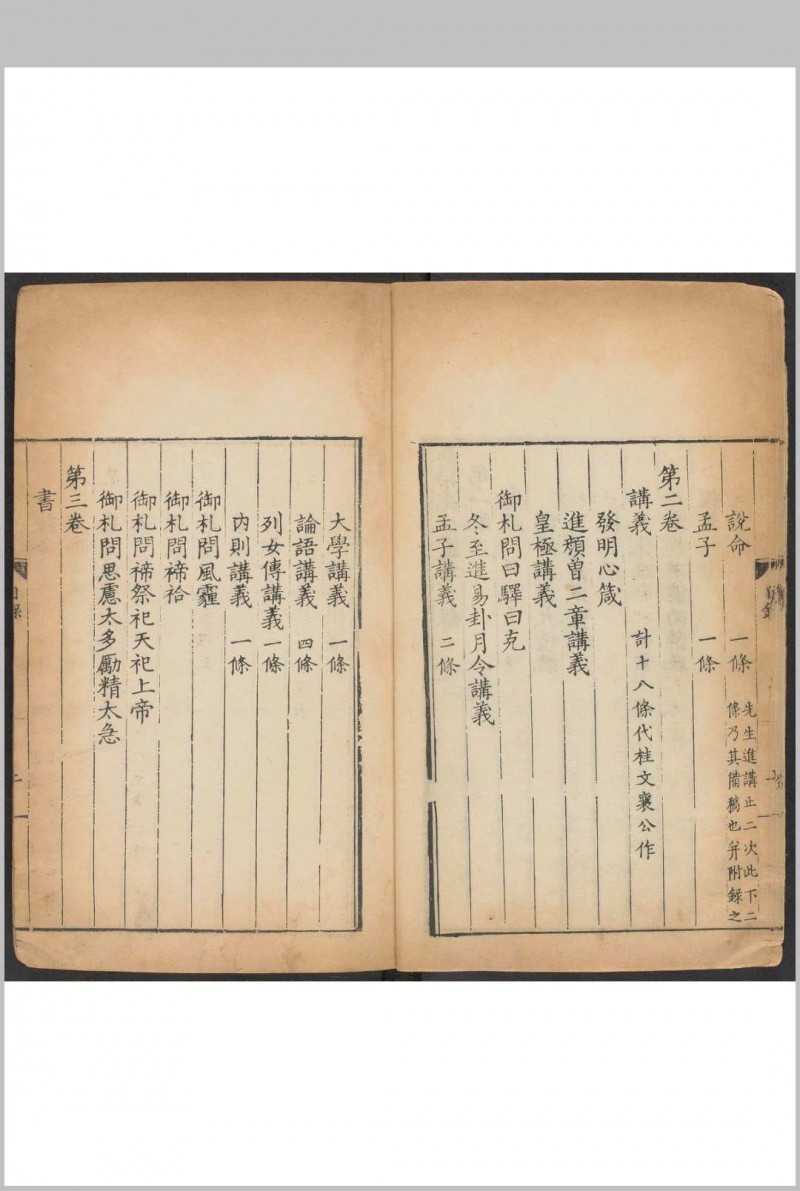 說命 一條 先生進講止二次此下二
條乃其備稿也并附錄之
孟子 一條
第二卷
講義 計十八條代桂文襄公作
發明心箴
進顏曾二章講義
皇極講義
御札問曰驛曰克
冬至進易卦月令講義
孟子講義 二條
大學講義 一條
論語講義 四條
列女傳講義 一條
內則講義 一條
御札問風霾
御札問禘祫
御札問禘祭祀天祀上帝
御札問思慮太多勵精太急
第三卷
書